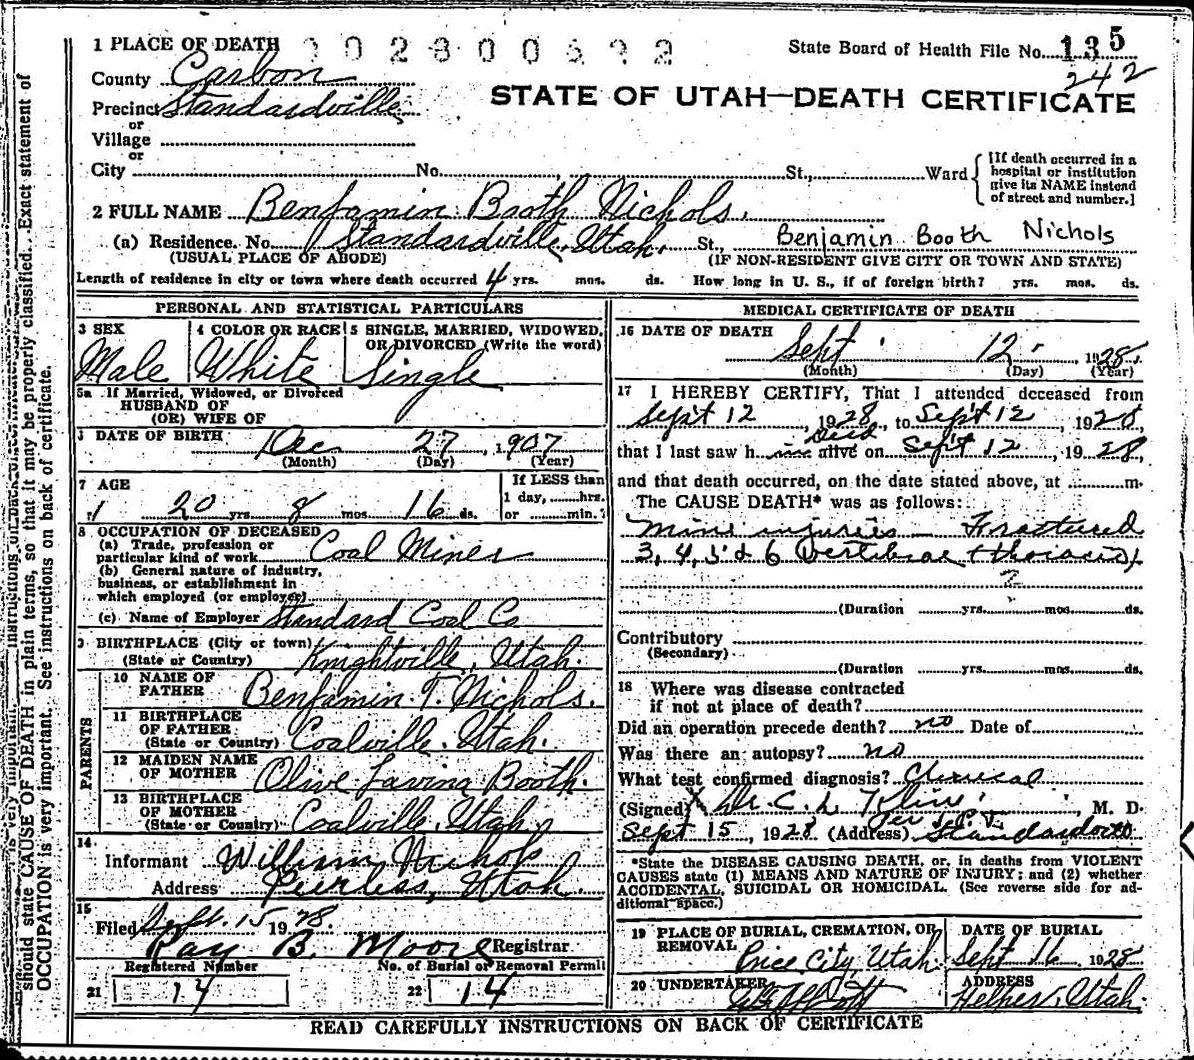 1 PLACE OF DEATH
County Carbon
State Board of Health File No. 135
242
Precinct Standardville
or
Village
or
STATE OF UTAH—DEATH CERTIFICATE
City No. St., Ward
[If death occurred in a
hospital or institution
give its NAME instead
of street and number.]
2 FULL NAME Benjamin Booth Nichols.
(a) Residence. No. Standardville, Utah. St., Benjamin Booth Nichols
(USUAL PLACE OF ABODE) (IF NON-RESIDENT GIVE CITY OR TOWN AND STATE)
Length of residence in city or town where death occurred 4 yrs. mos. ds. How long in U. S., if of foreign birth? yrs. mos. ds.
PERSONAL AND STATISTICAL PARTICULARS
3 SEX 4 COLOR OR RACE 5 SINGLE, MARRIED, WIDOWED,
OR DIVORCED (Write the word)
Male White Single
5a If Married, Widowed, or Divorced
HUSBAND OF
(OR) WIFE OF
DATE OF BIRTH Dec 27, 1907
(Month) (Day) (Year)
7 AGE If LESS than
1 day, hrs.
20 yrs. 8 mos. 16 ds. or min.?
8 OCCUPATION OF DECEASED
(a) Trade, profession or
particular kind of work Coal Miner
(b) General nature of industry,
business, or establishment in
which employed (or employer)
(c) Name of Employer Standard Coal Co
9 BIRTHPLACE (City or town)
(State or Country) Knightville, Utah.
PARENTS
10 NAME OF
FATHER Benjamin T. Nichols.
11 BIRTHPLACE
OF FATHER
(State or Country) Coalville, Utah.
12 MAIDEN NAME
OF MOTHER Olive Lavina Booth.
13 BIRTHPLACE
OF MOTHER
(State or Country) Coalville, Utah
14
Informant William Nichols
Address Peerless, Utah.
15
Filed Sept. 15 1928.
Ray B. Moore Registrar
Registered Number No. of Burial or Removal Permit
21 14 22 14
MEDICAL CERTIFICATE OF DEATH
16 DATE OF DEATH Sept 12 1928
(Month) (Day) (Year)
17 I HEREBY CERTIFY, That I attended deceased from
Sept 12, 1928, to Sept 12, 1928
Dead
that I last saw h im alive on Sept 12, 1928,
and that death occurred, on the date stated above, at m.
The CAUSE DEATH* was as follows:
Mine injuries — Fractured
3, 4, 5 & 6 Vertibrae (thoracis)
?
(Duration yrs. mos. ds.
Contributory
(Secondary)
(Duration yrs. mos. ds.
18 Where was disease contracted
if not at place of death?
Did an operation precede death? no Date of
Was there an autopsy? no
What test confirmed diagnosis? Clinical
(Signed) X Dr. C. L. Kline, M. D.
Per
Sept 15, 1928 (Address)
*State the DISEASE CAUSING DEATH, or, in deaths from VIOLENT
CAUSES state (1) MEANS AND NATURE OF INJURY; and (2) whether
ACCIDENTAL, SUICIDAL OR HOMICIDAL. (See reverse side for ad-
ditional space.)
19 PLACE OF BURIAL, CREMATION, OR
REMOVAL DATE OF BURIAL
Price City, Utah Sept 16 1928
20 UNDERTAKER ADDRESS
Helper, Utah.
READ CAREFULLY INSTRUCTIONS ON BACK OF CERTIFICATE
should state CAUSE OF DEATH in plain terms, so that it may be properly classified. Exact statement of
OCCUPATION is very important. See instructions on back of certificate.